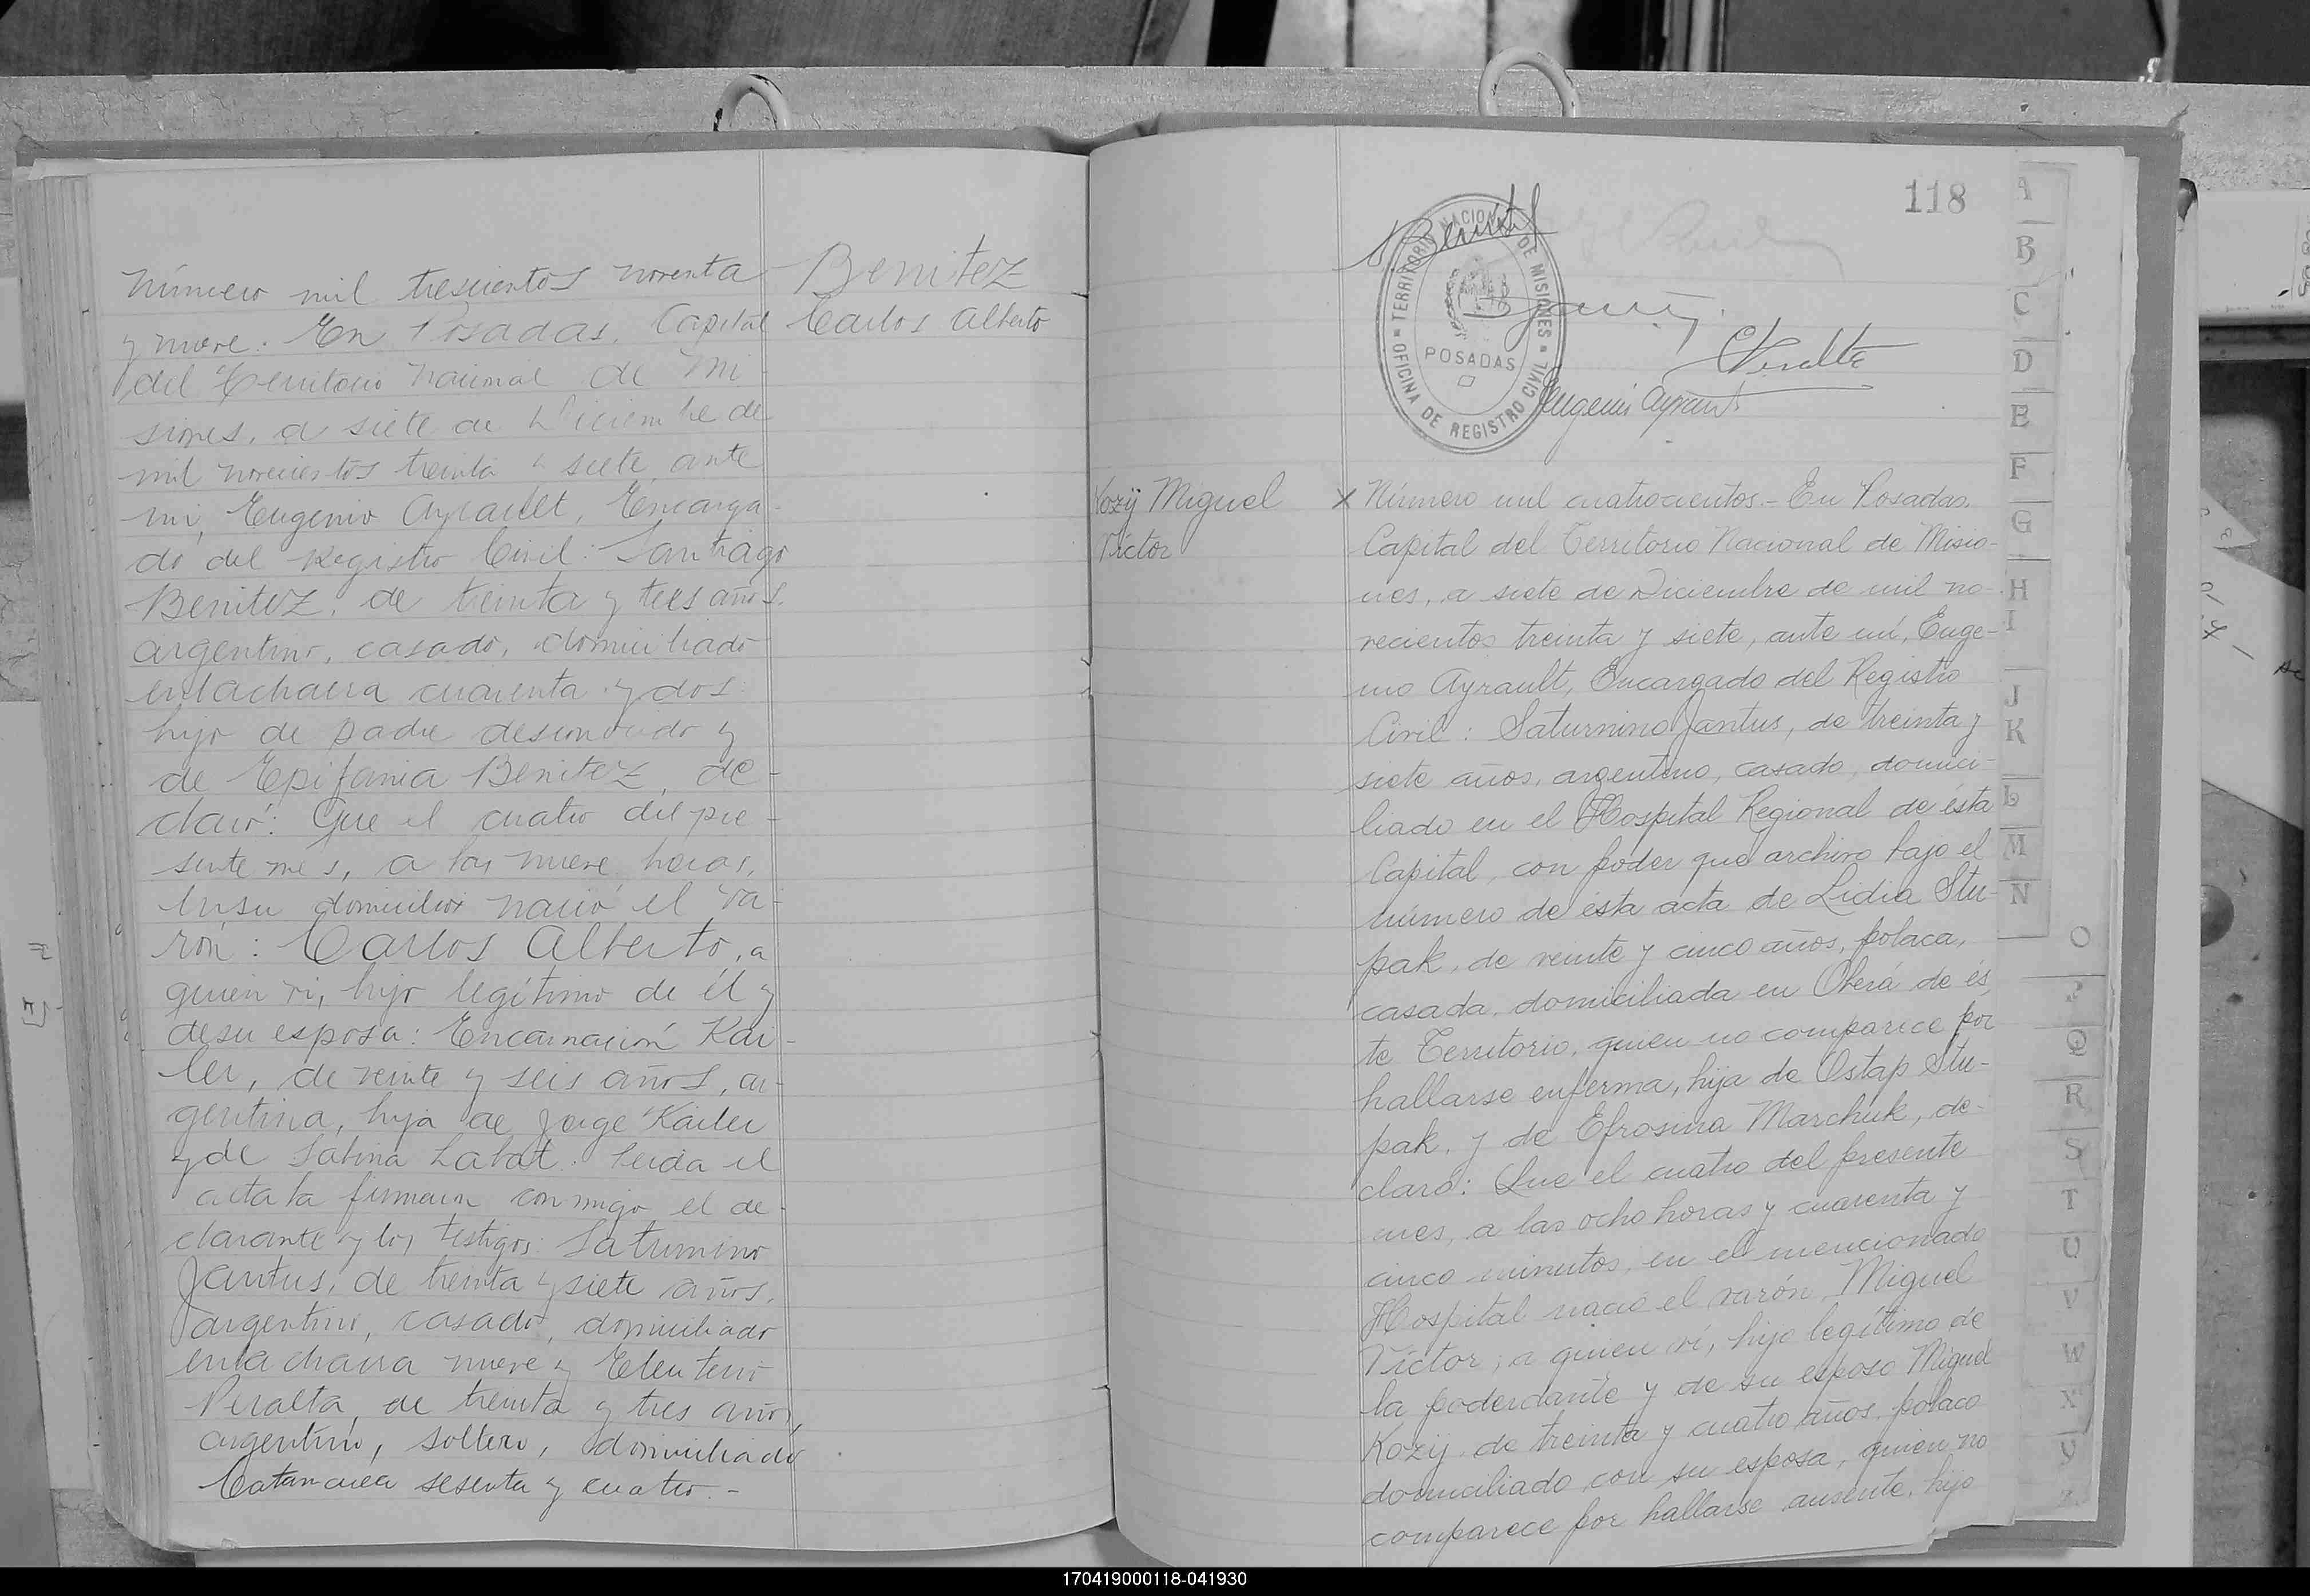 Número mil trescientos noventa
y nueve. En Posadas, Capital
del Territorio Nacional de Mi
siones, a siete de Diciembre de
mil novecientos treinta y siete, ante
mi, Eugenio Ayrault, Encarga-
do del Registro Civil: Santiago
Benitez, de treinta y tres años.
argentino, casado, domiciliado
en la chacra cuarenta y dos
hijo de padre desconocido y
de Epifania Benitez, de-
claró: Que el cuatro del pre-
sente mes, a las nueve horas,
en su domicilio nació el va-
rón: Carlos Alberto, a
quien vi, hijo legítimo de él y
de su esposa: Encarnación Kai-
ler, de veinte y seis años, ar-
gentina, hija de Jorge Kailer
y de Sabina Labat. Leida el
acta la firmaron conmigo el de-
clarante y los testigos: Saturnino
Jantus, de treinta y siete años,
argentino, casado, domiciliado
en la chacra nueve y Eleuterio
Peralta, de treinta y tres años,
argentino, soltero, domiciliado
Catamarca sesenta y cuatro.-
Benitez
Carlos Alberto
118
S Benitez
TERRITORIO NACIONAL DE MISIONES
POSADAS
OFICINA DE REGISTRO CIVIL
EPeralta
Eugenio Ayrault
Kozij Miguel
Víctor
X Número mil cuatrocientos.- En Posadas,
Capital del Territorio Nacional de Misio-
nes, a siete de Diciembre de mil no-
vecientos treinta y siete, ante mí, Euge-
nio Ayrault, Encargado del Registro
Civil: Saturnino Jantus, de treinta y
siete años, argentino, casado, domici-
liado en el Hospital Regional de ésta
Capital, con poder que archivo bajo el
número de ésta acta de Lidia Stu-
pak, de veinte y cinco años, polaca,
casada, domiciliada en Oberá de és
te Territorio, quien no comparece por
hallarse enferma, hija de Ostap Stu-
pak, y de Efrosina Marchuk, de-
claró: Que el cuatro del presente
mes, a las ocho horas y cuarenta y
cinco minutos, en el mencionado
Hospital nació el varón, Miguel
Víctor; a quien ví, hijo legítimo de
la poderdante y de su esposo Miguel
Kozij, de treinta y cuatro años, polaco
domiciliado con su esposa, quien no
comparece por hallarse ausente, hijo
A
B
C
D
E
F
G
H
I
J
K
L
M
N
O
P
Q
R
S
T
U
V
W
X
Y
Z
170419000118-041930